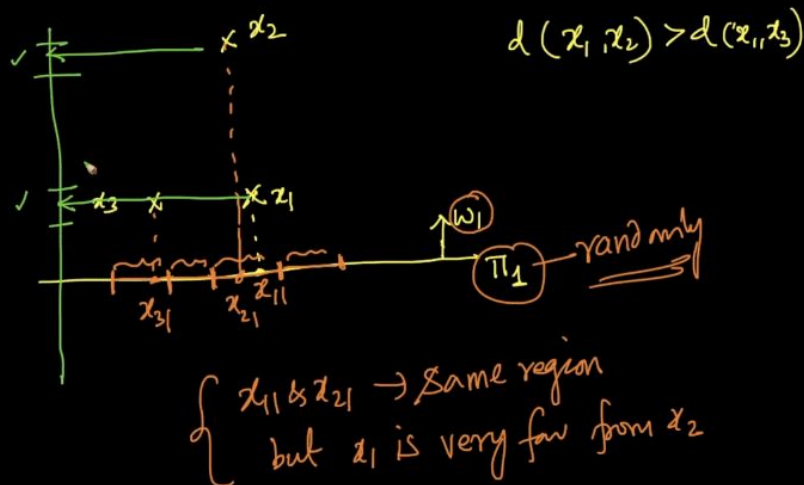 x₂
d(x₁, x₂) > d(x₁, x₃)
x₃
x₁
w₁
π₁ randomly
x₃₁
x₂₁
x₁₁
x₁₁ & x₂₁ → Same region
but x₁ is very far from x₂